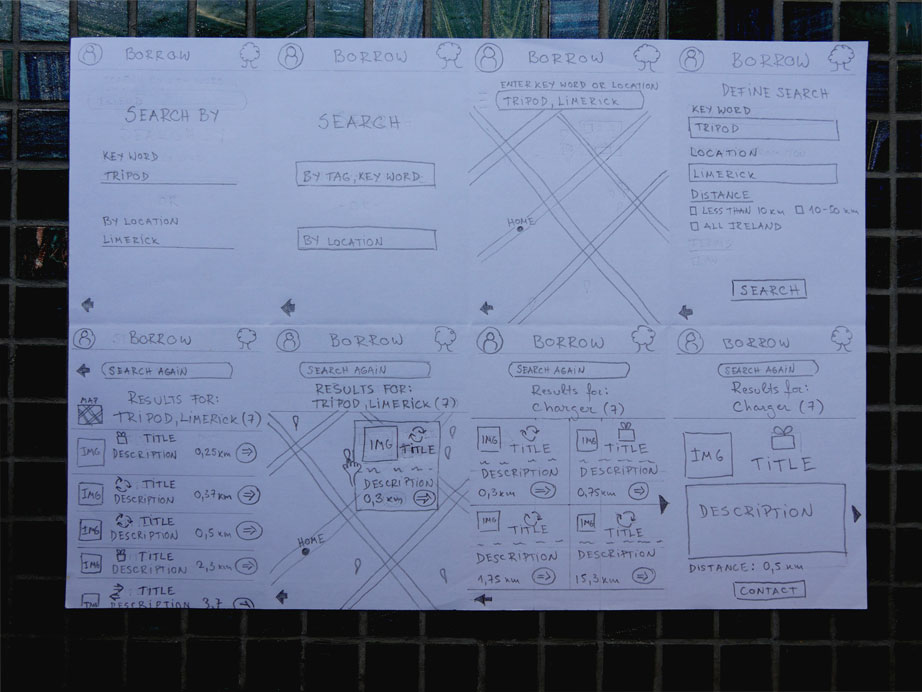 BORROW
SEARCH BY
KEY WORD
TRIPOD
OR
BY LOCATION
LIMERICK
BORROW
SEARCH
BY TAG, KEY WORD
OR
BY LOCATION
BORROW
ENTER KEY WORD OR LOCATION
TRIPOD, LIMERICK
HOME
BORROW
DEFINE SEARCH
KEY WORD
TRIPOD
LOCATION
LIMERICK
DISTANCE
LESS THAN 10 KM 10-50 KM
ALL IRELAND
TERMS
SEARCH
BORROW
SEARCH AGAIN
MAP
RESULTS FOR:
TRIPOD, LIMERICK (7)
IMG TITLE
DESCRIPTION 0,25 KM
IMG TITLE
DESCRIPTION 0,37 KM
IMG TITLE
DESCRIPTION 0,5 KM
IMG TITLE
DESCRIPTION 2,3 KM
IMG TITLE
DESCRIPTION 3,7
BORROW
SEARCH AGAIN
RESULTS FOR:
TRIPOD, LIMERICK (7)
IMG TITLE
DESCRIPTION
0,3 KM
HOME
BORROW
SEARCH AGAIN
Results for:
Charger (7)
IMG TITLE
DESCRIPTION
0,3 KM
IMG TITLE
DESCRIPTION
0,75 KM
IMG TITLE
DESCRIPTION
1,75 KM
IMG TITLE
DESCRIPTION
15,3 KM
BORROW
SEARCH AGAIN
Results for:
Charger (7)
IMG TITLE
DESCRIPTION
DISTANCE: 0,5 KM
CONTACT